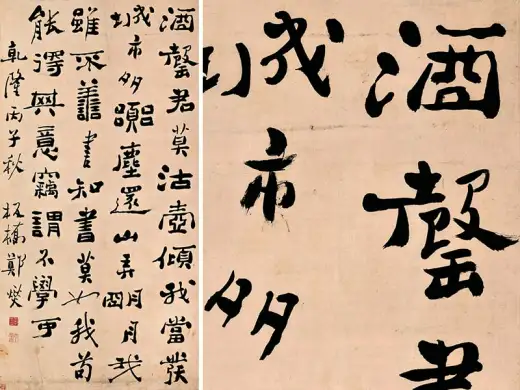 酒罄君莫沽壺傾我當發
城市多囂塵還山弄明月我
雖不善書知書莫如我苟
能得其意竊謂不學可
乾隆丙子秋板橋鄭燮
酒罄君
城市多